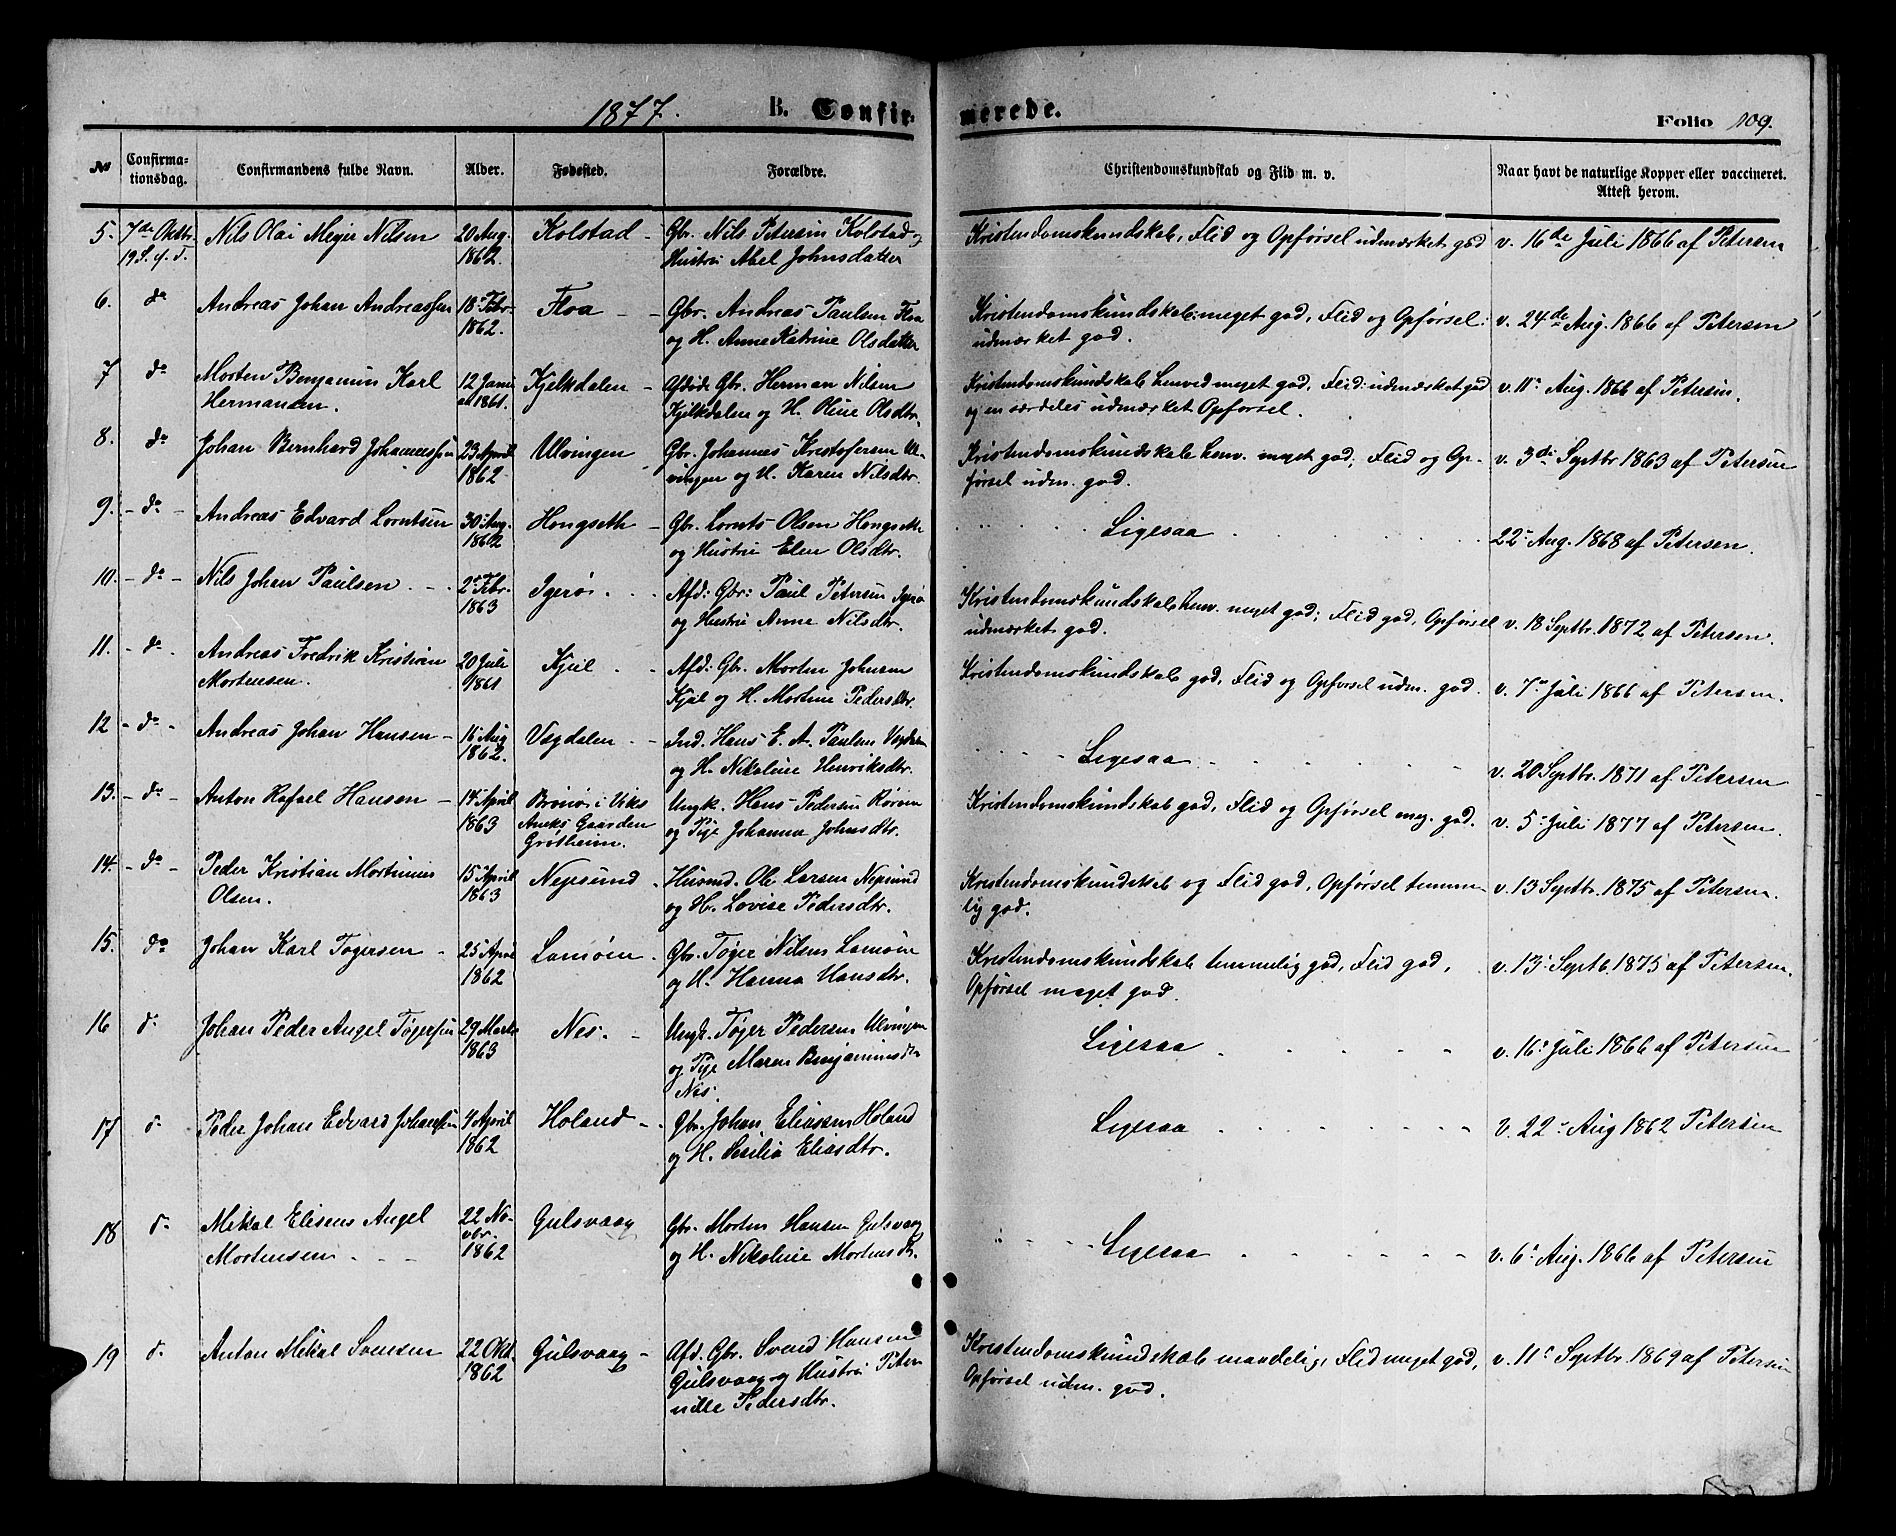 1877. B. Confirmerede. Folio 109.
No Confirmationsdag. Confirmandens fulde Navn. Alder. Fødested. Forældre. Christendomskundskab og Flid m. v. Naar havt de naturlige Kopper eller vaccineret. Attest herom.
5. 7de Oktbr. Nils Olai Meyer Nilsen 20 Aug. Kolstad Gbr. Nils Petersen Kolstad og Kristendomskundskab, Flid og Opførsel udmærket god v. 16de Juli 1866 af Petersen
19 S. e. T. 1862. Hustru Abel Johnsdatter
6. do Andreas Johan Andreassen 18 Febr. Floa Gbr. Andreas Paulsen Floa Kristendomskundskab: meget god, Flid og Opførsel: v. 24de Aug. 1866 af Petersen
1862. og H. Anne Katrine Olsdatter udmærket god.
7 do Morten Benjamin Karl 12 Janu Kjelkdalen Afdøde Gbr. Herman Nilsen Kristendomskundskab henved meget god, Flid: udmærket god v. 11 Aug. 1866 af Petersen.
Hermansen. 1861. Kjelkdalen og H. Oline Olsdtr. og en særdeles udmærket Opførsel.
8. do Johan Bernhard Johannessen 23 April Ulvingen Gbr. Johannes Kristofersen Ul- Kristendomskundskab henv. meget god; Flid og Op- v. 3de Septbr 1863 af Petersen
1862. vingen og H. Karen Nilsdtr. førsel udm. god.
9. do Andreas Edvard Lorntsen 30 Aug. Hongseth Gbr. Lornts Olsen Hongseth Ligesaa 22 Aug. 1868 af Petersen.
1862 og Hustru Elen Olsdtr.
10. do Nils Johan Paulsen 2 Febr. Igerøi Afd: Gbr: Paul Petersen Igerø Kristendomskundskab henv. meget god; Flid god, Opførsel v. 18 Septbr. 1872 af Petersen.
1863 og Hustru Anne Nilsdtr. udmærket god.
11. do Andreas Fredrik Kristian 20 Juli Kjul Afd: Gbr. Morten Johnsen Kristendomskundskab god, Flid og Opførsel udm. god. v. 7 Juli 1866 af Petersen.
Mortensen. 1861 Kjul og H. Mortine Pedersdtr.
12 do Andreas Johan Hansen 16 Aug Vægdalen Ind. Hans E. A. Paulsen Vægdalen Ligesaa v. 20 Septbr. 1871 af Petersen
1862. og H. Nikoline Henriksdtr.
13. do Anton Rafael Hansen 14 April Brønø i Viks Ungk. Hans Pedersen Røren Kristendomskundskab god, Flid og Opførsel meg. god. v. 5 Juli 1877 af Petersen.
1863 Aneks Gaarden og Pige Johanna Johnsdtr.
Grøsheim.
14. do Peder Kristian Mortinius 15 April Nepsund Husmd. Ole Larsen Nepsund Kristendomskundskab og Flid god, Opførsel temme- v. 13 Septbr. 1875 af Petersen.
Olsen. 1863 og H. Lovise Pedersdtr. lig god.
15. do Johan Karl Tøgersen 25 April Lamøen Gbr. Tøger Nilsen Lamøen Kristendomskundskab temmelig god, Flid god, v. 13 Septb. 1875 af Petersen.
1862 og H. Hanna Hansdtr. Opførsel meget god.
16 do Johan Peder Angel Tøgersen 29 Marts Nes. Ungk. Tøger Pedersen Ulvingen Ligesaa v. 16 Juli 1866 af Petersen
1863 og Pige Maren Benjaminsdtr
Nes.
17 do Peder Johan Edvard Johansen 4 April Holand Gbr. Johan Eliasen Holand Ligesaa v. 22 Aug 1862 Petersen
1862 og H. Sesilia Eliasdtr.
18 do Mikal Elisens Angel 22 No- Gulsvaag Gbr. Morten Hansen Gulsvaag Ligesaa v. 6 Aug. 1866 af Petersen
Mortensen vbr. og H. Nikoline Mortensdtr.
1862
19 do Anton Mikal Svensen 22 Okt. Gulsvaag Afd. Gbr. Svend Hansen Kristendomskundskab maadelig, Flid meget god, v. 11 Septbr. 1869 af Petersen
1862 Gulsvaag og Hustru Peter- Opførsel udm. god.
nille Pedersdtr.